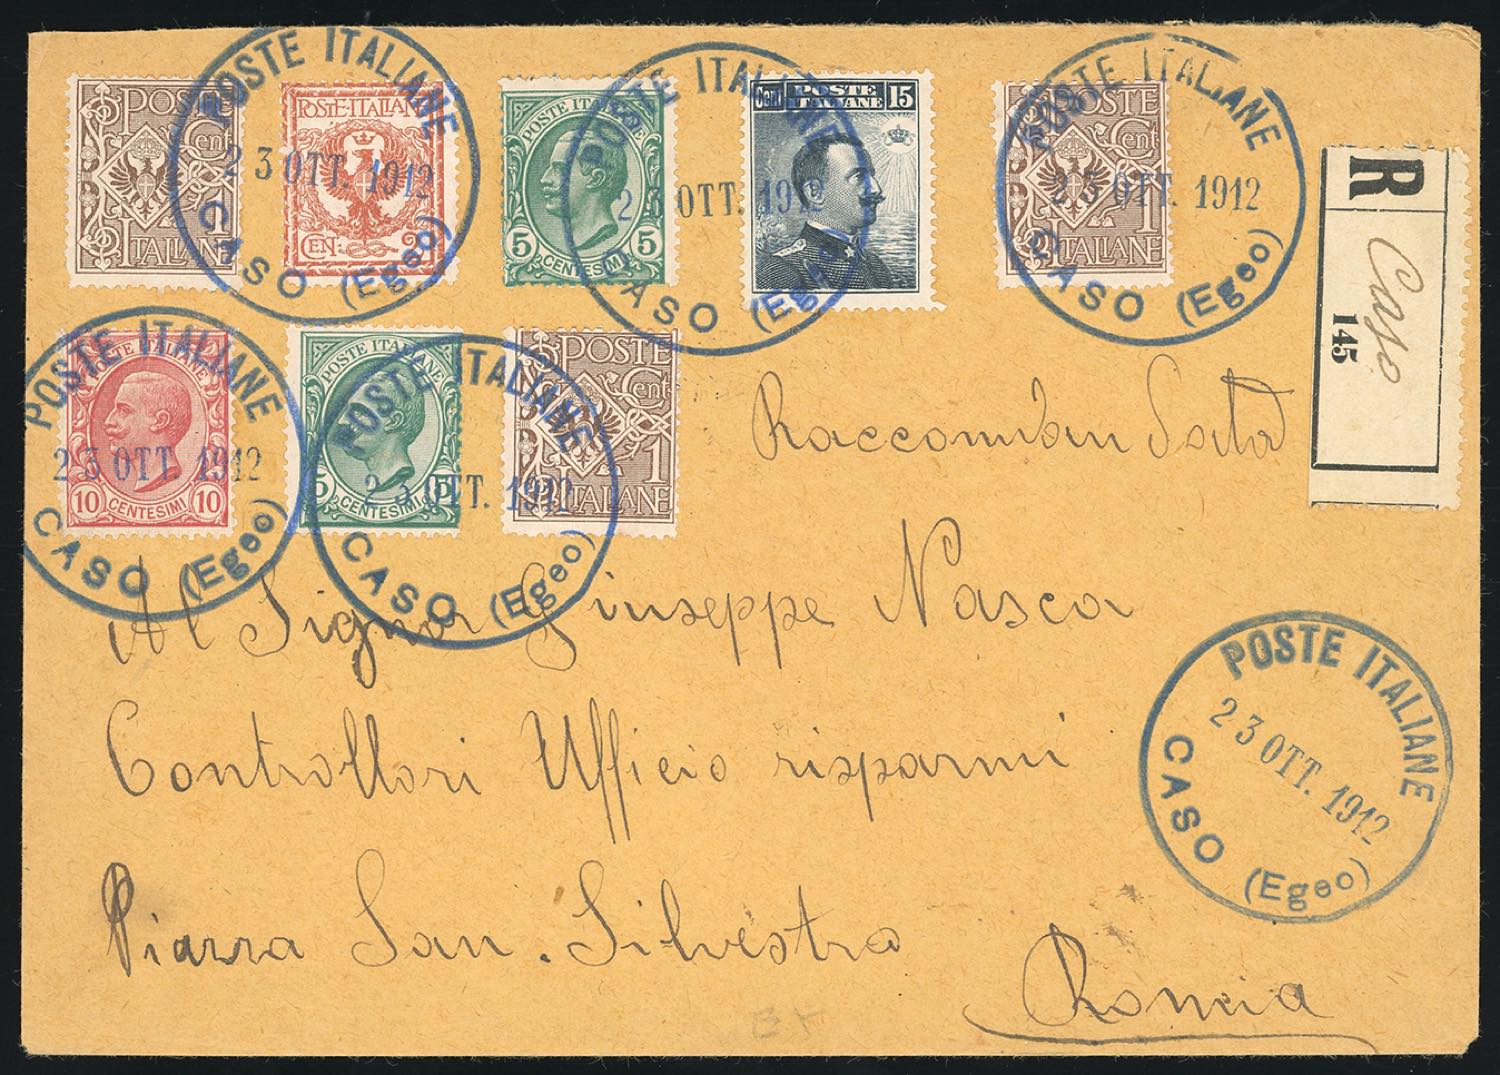 POSTE
Cent
1
ITALIANE
POSTE·ITALIANE
CEN: 2
POSTE ITALIANE
5 5
CENTESIMI
Cent POSTE ITALIANE 15
POSTE
Cent
1
ITALIANE
POSTE ITALIANE
23 OTT. 1912
CASO (Egeo)
POSTE ITALIANE
23 OTT. 1912
CASO (Egeo)
POSTE ITALIANE
23 OTT. 1912
CASO (Egeo)
R
Caso
145
POSTE ITALIANE
10 10
CENTESIMI
POSTE ITALIANE
5 5
CENTESIMI
POSTE
Cent
1
ITALIANE
POSTE ITALIANE
23 OTT. 1912
CASO (Egeo)
POSTE ITALIANE
23 OTT. 1912
CASO (Egeo)
Raccomandata
Al Signor Giuseppe Nasca
Controllori Ufficio risparmi
Piazza San. Silvestro
Roma
POSTE ITALIANE
23 OTT. 1912
CASO (Egeo)